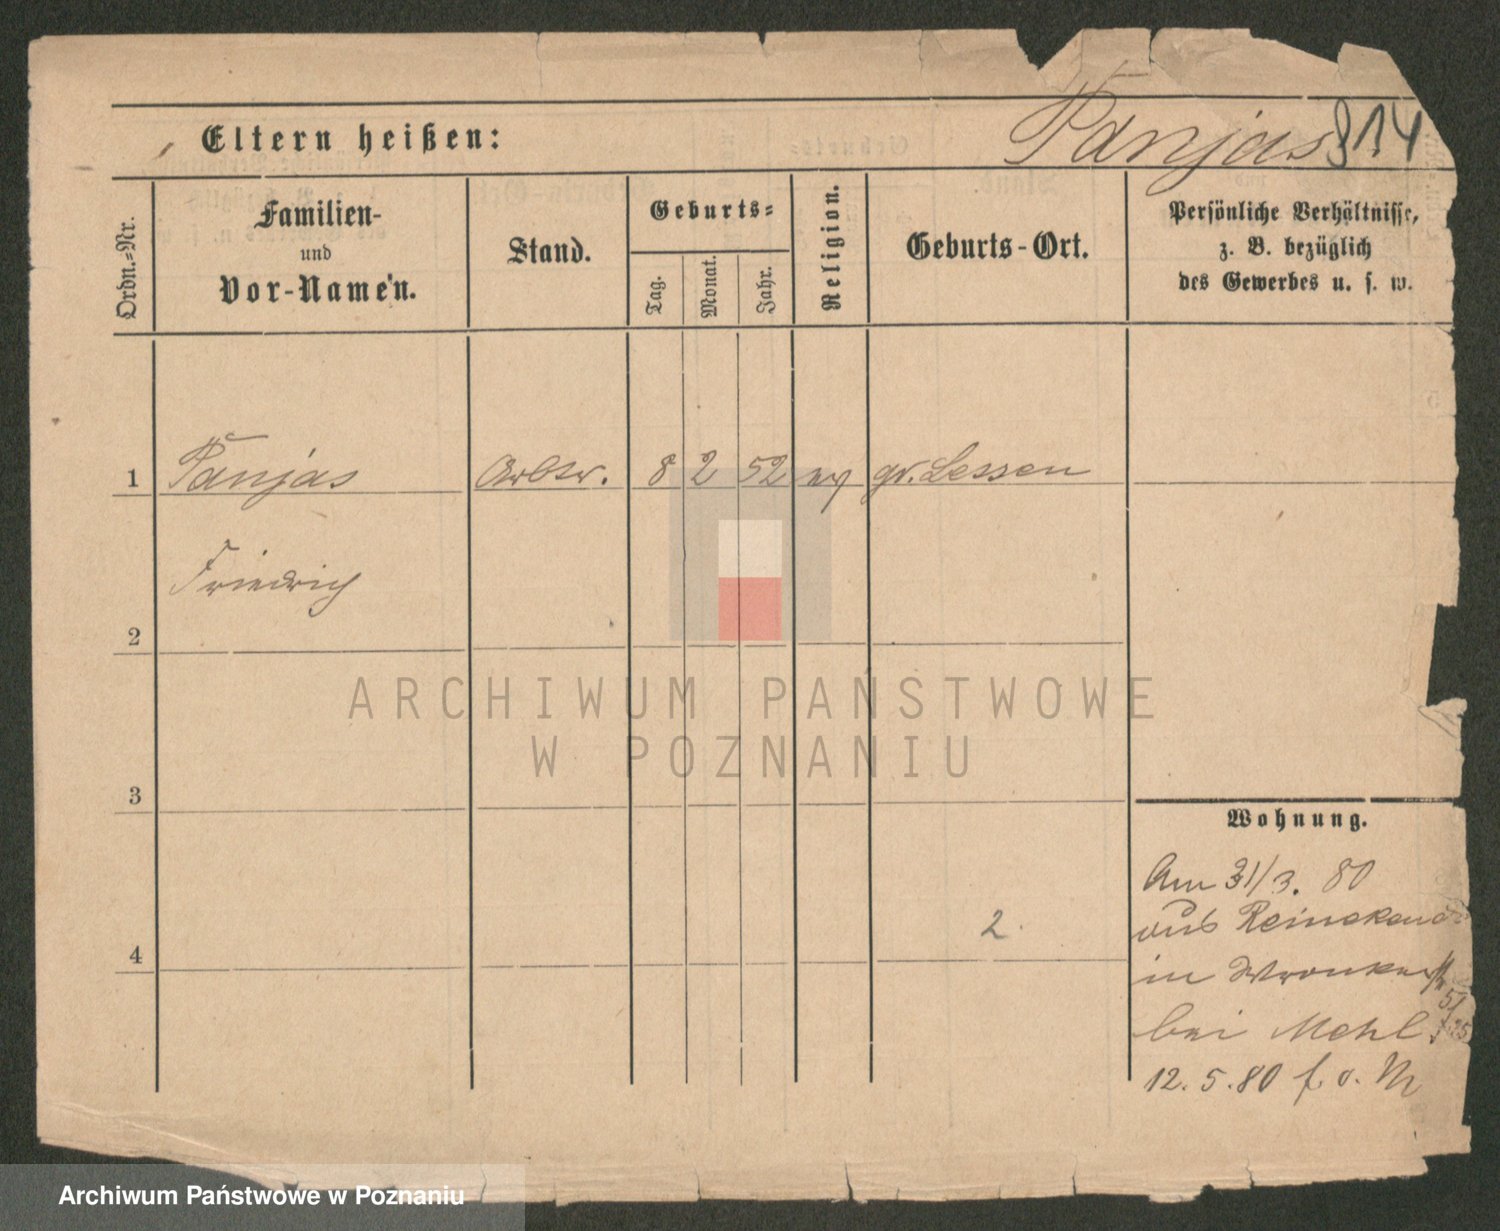 Eltern heißen:
Panjas 814
Ordn.-Nr.
Familien-
und
Vor-Namen.
Stand.
Geburts-
Tag.
Monat.
Jahr.
Religion.
Geburts-Ort.
Persönliche Verhältnisse,
z. B. bezüglich
des Gewerbes u. s. w.
1 Panjas Arbtr. 8 2 52 ev gr. Lessen
Friedrich
2
3
4
2.
Wohnung.
Am 31/3. 80
aus
in Wronkerstr
bei Mehl.
12. 5. 80 f. o. M
ARCHIWUM PAŃSTWOWE
W POZNANIU
Archiwum Państwowe w Poznaniu